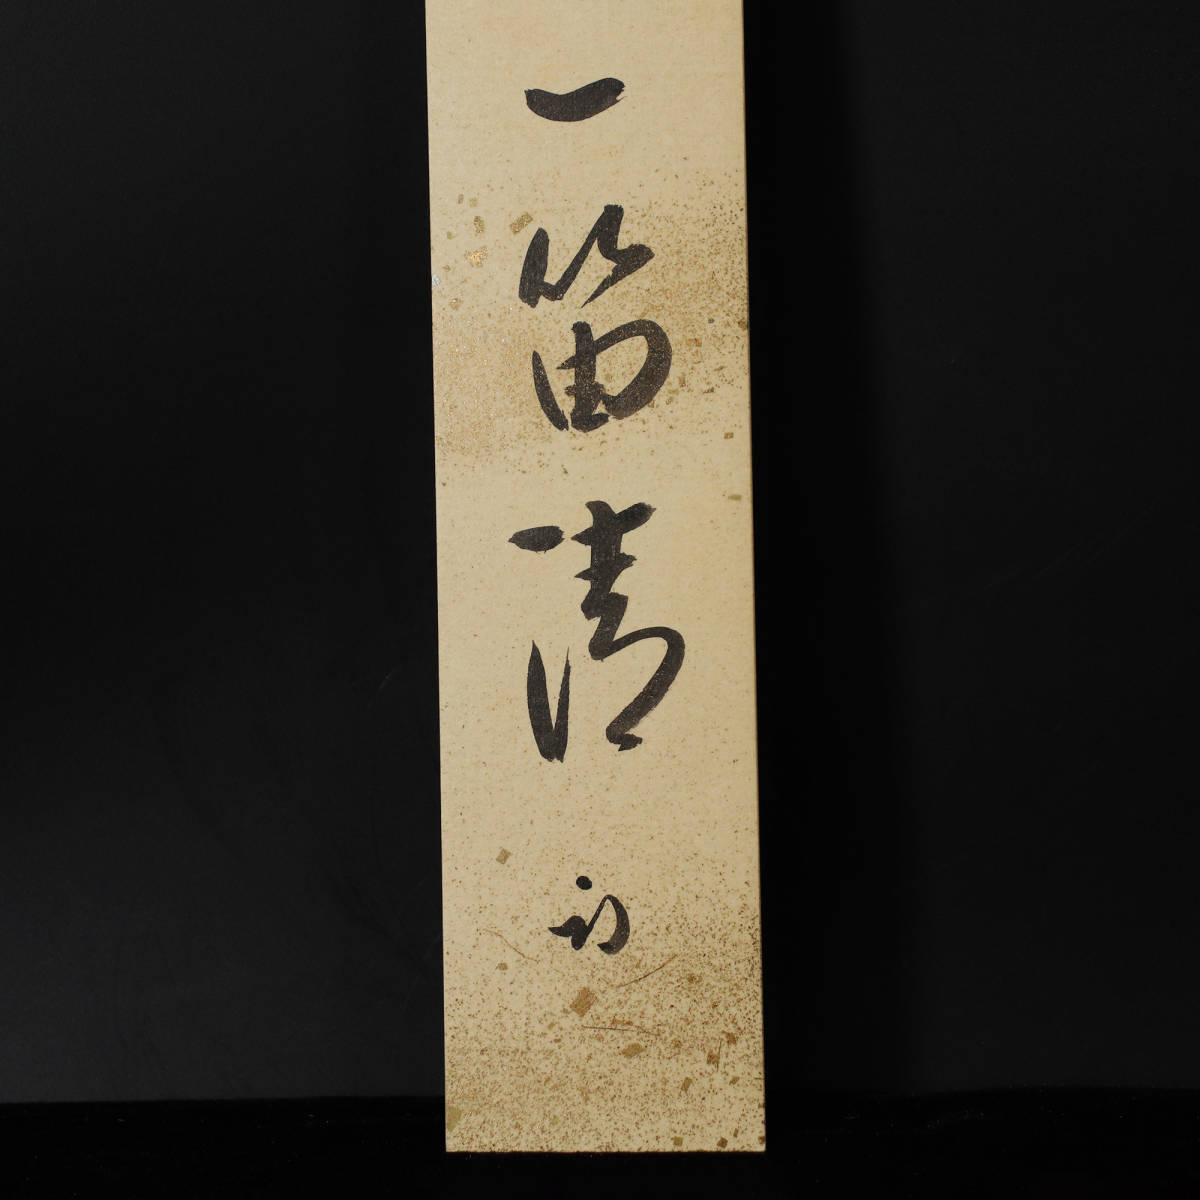 一笛清